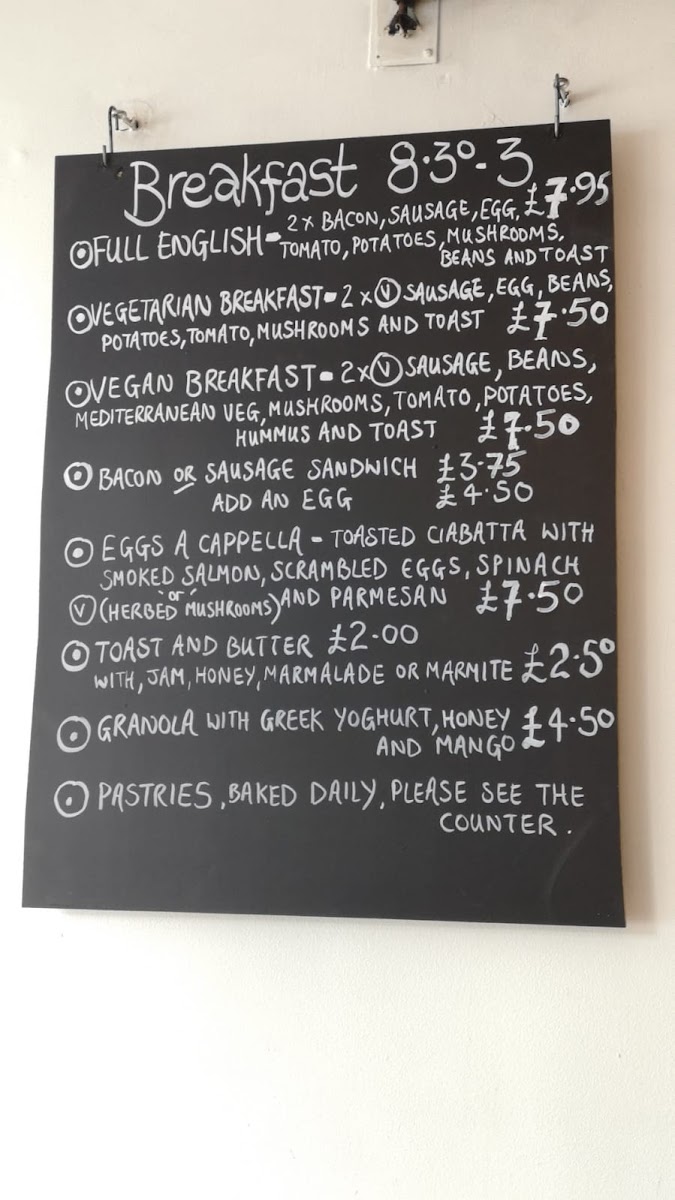 Breakfast 8.30-3
FULL ENGLISH - 2 x BACON, SAUSAGE, EGG, £7.95
TOMATO, POTATOES, MUSHROOMS,
BEANS AND TOAST
VEGETARIAN BREAKFAST - 2 x Ⓥ SAUSAGE, EGG, BEANS,
POTATOES, TOMATO, MUSHROOMS AND TOAST £7.50
VEGAN BREAKFAST - 2x Ⓥ SAUSAGE, BEANS,
MEDITERRANEAN VEG, MUSHROOMS, TOMATO, POTATOES,
HUMMUS AND TOAST £7.50
BACON OR SAUSAGE SANDWICH £3.75
ADD AN EGG £4.50
EGGS A CAPPELLA - TOASTED CIABATTA WITH
SMOKED SALMON, SCRAMBLED EGGS, SPINACH
"or"
Ⓥ (HERBED MUSHROOMS) AND PARMESAN £7.50
TOAST AND BUTTER £2.00
WITH, JAM, HONEY, MARMALADE OR MARMITE £2.50
GRANOLA WITH GREEK YOGHURT, HONEY £4.50
AND MANGO
PASTRIES, BAKED DAILY, PLEASE SEE THE
COUNTER.